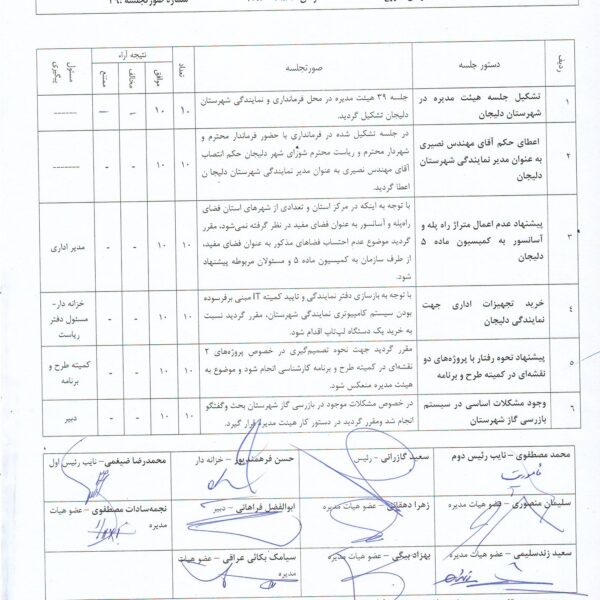 شماره صورتجلسه : ۳۹
ردیف
دستور جلسه
صورتجلسه
تعداد
نتیجه آراء
موافق
مخالف
ممتنع
مسئول پیگیری
۱
تشکیل جلسه هیئت مدیره در
شهرستان دلیجان
جلسه ۳۹ هیئت مدیره در محل فرمانداری و نمایندگی شهرستان
دلیجان تشکیل گردید.
۱۰
۱۰
-
-
------
۲
اعطای حکم آقای مهندس نصیری
به عنوان مدیر نمایندگی شهرستان
دلیجان
در جلسه تشکیل شده در فرمانداری با حضور فرماندار محترم و
شهردار محترم و ریاست محترم شورای شهر دلیجان حکم انتصاب
آقای مهندس نصیری به عنوان مدیر نمایندگی شهرستان دلیجا ن
اعطا گردید.
۱۰
۱۰
-
-
-------
۳
پیشنهاد عدم اعمال متراژ راه پله و
آسانسور به کمیسیون ماده ۵
دلیجان
با توجه به اینکه در مرکز استان و تعدادی از شهرهای استان فضای
راه‌پله و آسانسور به عنوان فضای مفید در نظر گرفته نمی‌شود، مقرر
گردید موضوع عدم احتساب فضاهای مذکور به عنوان فضای مفید،
از طرف سازمان به کمیسیون ماده ۵ و مسئولان مربوطه پیشنهاد
شود.
۱۰
۱۰
-
-
مدیر اداری
۴
خرید تجهیزات اداری جهت
نمایندگی دلیجان
با توجه به بازسازی دفتر نمایندگی و تایید کمیته IT مبنی برفرسوده
بودن سیستم کامپیوتری نمایندگی شهرستان، مقرر گردید نسبت
به خرید یک دستگاه لپ‌تاپ اقدام شود.
۱۰
۱۰
-
-
خزانه دار-
مسئول دفتر
ریاست
۵
پیشنهاد نحوه رفتار با پروژه‌های دو
نقشه‌ای در کمیته طرح و برنامه
مقرر گردید جهت نحوه تصمیم‌گیری در خصوص پروژه‌های ۲
نقشه‌ای در کمیته طرح و برنامه کارشناسی انجام شود و موضوع به
هیئت مدیره منعکس شود.
۱۰
۱۰
-
-
کمیته طرح و
برنامه
۶
وجود مشکلات اساسی در سیستم
بازرسی گاز شهرستان
در خصوص مشکلات موجود در بازرسی گاز شهرستان بحث وگفتگو
انجام شد ومقرر گردید در دستور کار هیئت مدیره قرار گیرد.
۱۰
۱۰
-
-
دبیر
محمد مصطفوی – نایب رئیس دوم
سعید گازرانی - رئیس
حسن فرهمندپور – خزانه دار
محمدرضا ضیغمی – نایب رئیس اول
سلیمان منصوری – عضو هیات مدیره
زهرا دهقانی – عضو هیات مدیره
ابوالفضل فراهانی – دبیر
نجمه‌سادات مصطفوی – عضو هیات
مدیره
سعید زندسلیمی – عضو هیات مدیره
بهزاد بیگی – عضو هیات مدیره
سیامک بکائی عراقی – عضو هیات
مدیره